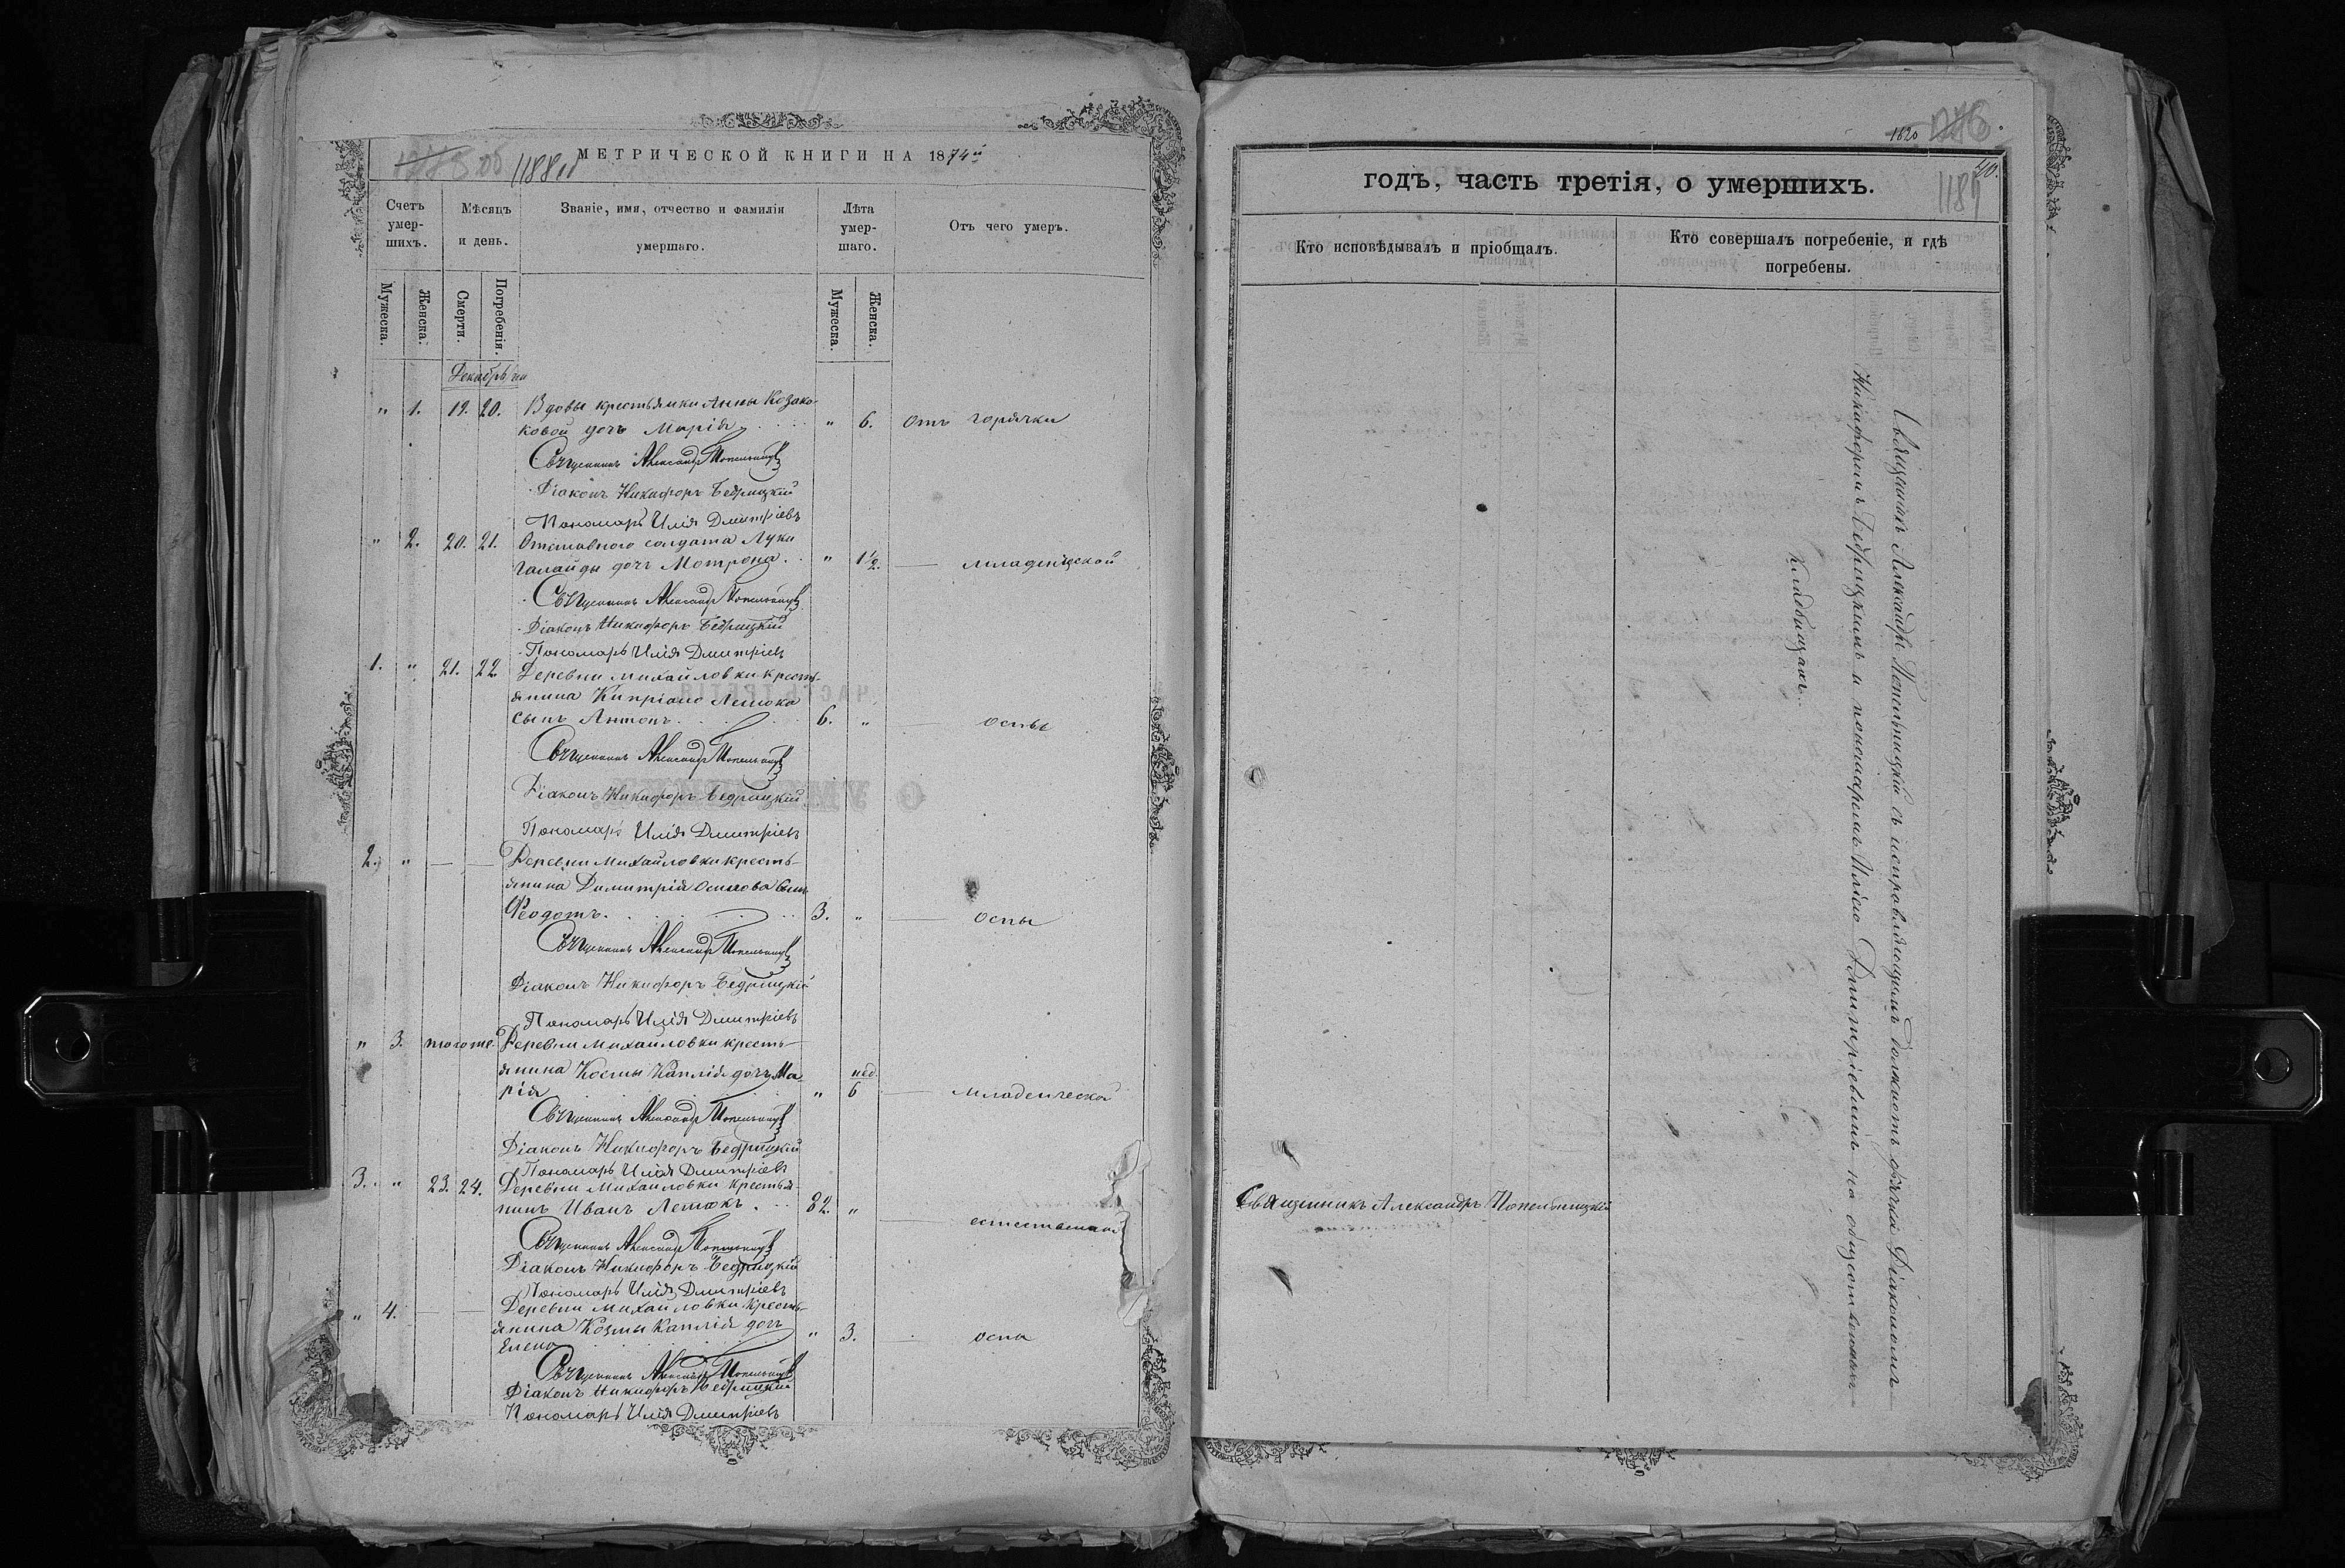 1188 об
МЕТРИЧЕСКОЙ КНИГИ НА 1874й
Счетъ умер-шихъ.
Мѣсяцъ и день.
Званіе, имя, отчество и фамилія умершаго.
Лѣта умер-шаго.
Отъ чего умеръ.
Мужеска.
Женска.
Смерти.
Погребенія.
Мужеска.
Женска.
Декабрь
" 1. 19. 20. Вдовы крестьянки Анны Козако-
ковой дочь Марія " 6. Отъ горячки
Священникъ Александръ Попельницкій
Діаконъ Никифоръ Бедрицкій
Пономарь Илія Дмитріевъ
" 2. 20. 21. Отставного солдата Луки
Галайды дочь Мотрона " 1 1/2. — младенческой
Священникъ Александръ Попельницкій
Діаконъ Никифоръ Бедрицкій
Пономарь Илія Дмитріевъ
1. " 21. 22 Деревни Михайловки кресть-
янина Кипріана Летока
сынъ Антонъ 6. " — оспы
Священникъ Александръ Попельницкій
Діаконъ Никифоръ Бедрицкій
Пономарь Илія Дмитріевъ
2. " — — Деревни Михайловки кресть-
янина Димитрія Осипова сынъ
Феодотъ 3. " — оспы
Священникъ Александръ Попельницкій
Діаконъ Никифоръ Бедрицкій
Пономарь Илія Дмитріевъ
" 3. тогоже Деревни Михайловки кресть-
янина Космы Каплія дочь Ма-
рія " нед. 6 — младенческой
Священникъ Александръ Попельницкій
Діаконъ Никифоръ Бедрицкій
Пономарь Илія Дмитріевъ
3. " 23. 24. Деревни Михайловки крестья-
нинъ Иванъ Летокъ 82. " — естественной
Священникъ Александръ Попельницкій
Діаконъ Никифоръ Бедрицкій
Пономарь Илія Дмитріевъ
" 4. — — Деревни Михайловки кресть-
янина Козмы Каплія дочь
Елена " 3. оспа
Священникъ Александръ Попельницкій
Діаконъ Никифоръ Бедрицкій
Пономарь Илія Дмитріевъ
1620
40.
1189
годъ, часть третія, о умершихъ.
Кто исповѣдывалъ и пріобщалъ.
Кто совершалъ погребеніе, и гдѣ
погребены.
Священникъ Александръ Попельницкій
Священникъ Александръ Попельницкій съ исправляющимъ должность дьячка Діакономъ
Никифоромъ Бедрицкимъ и пономаремъ Иліею Дмитріевымъ на общественномъ
Кладбищахъ.